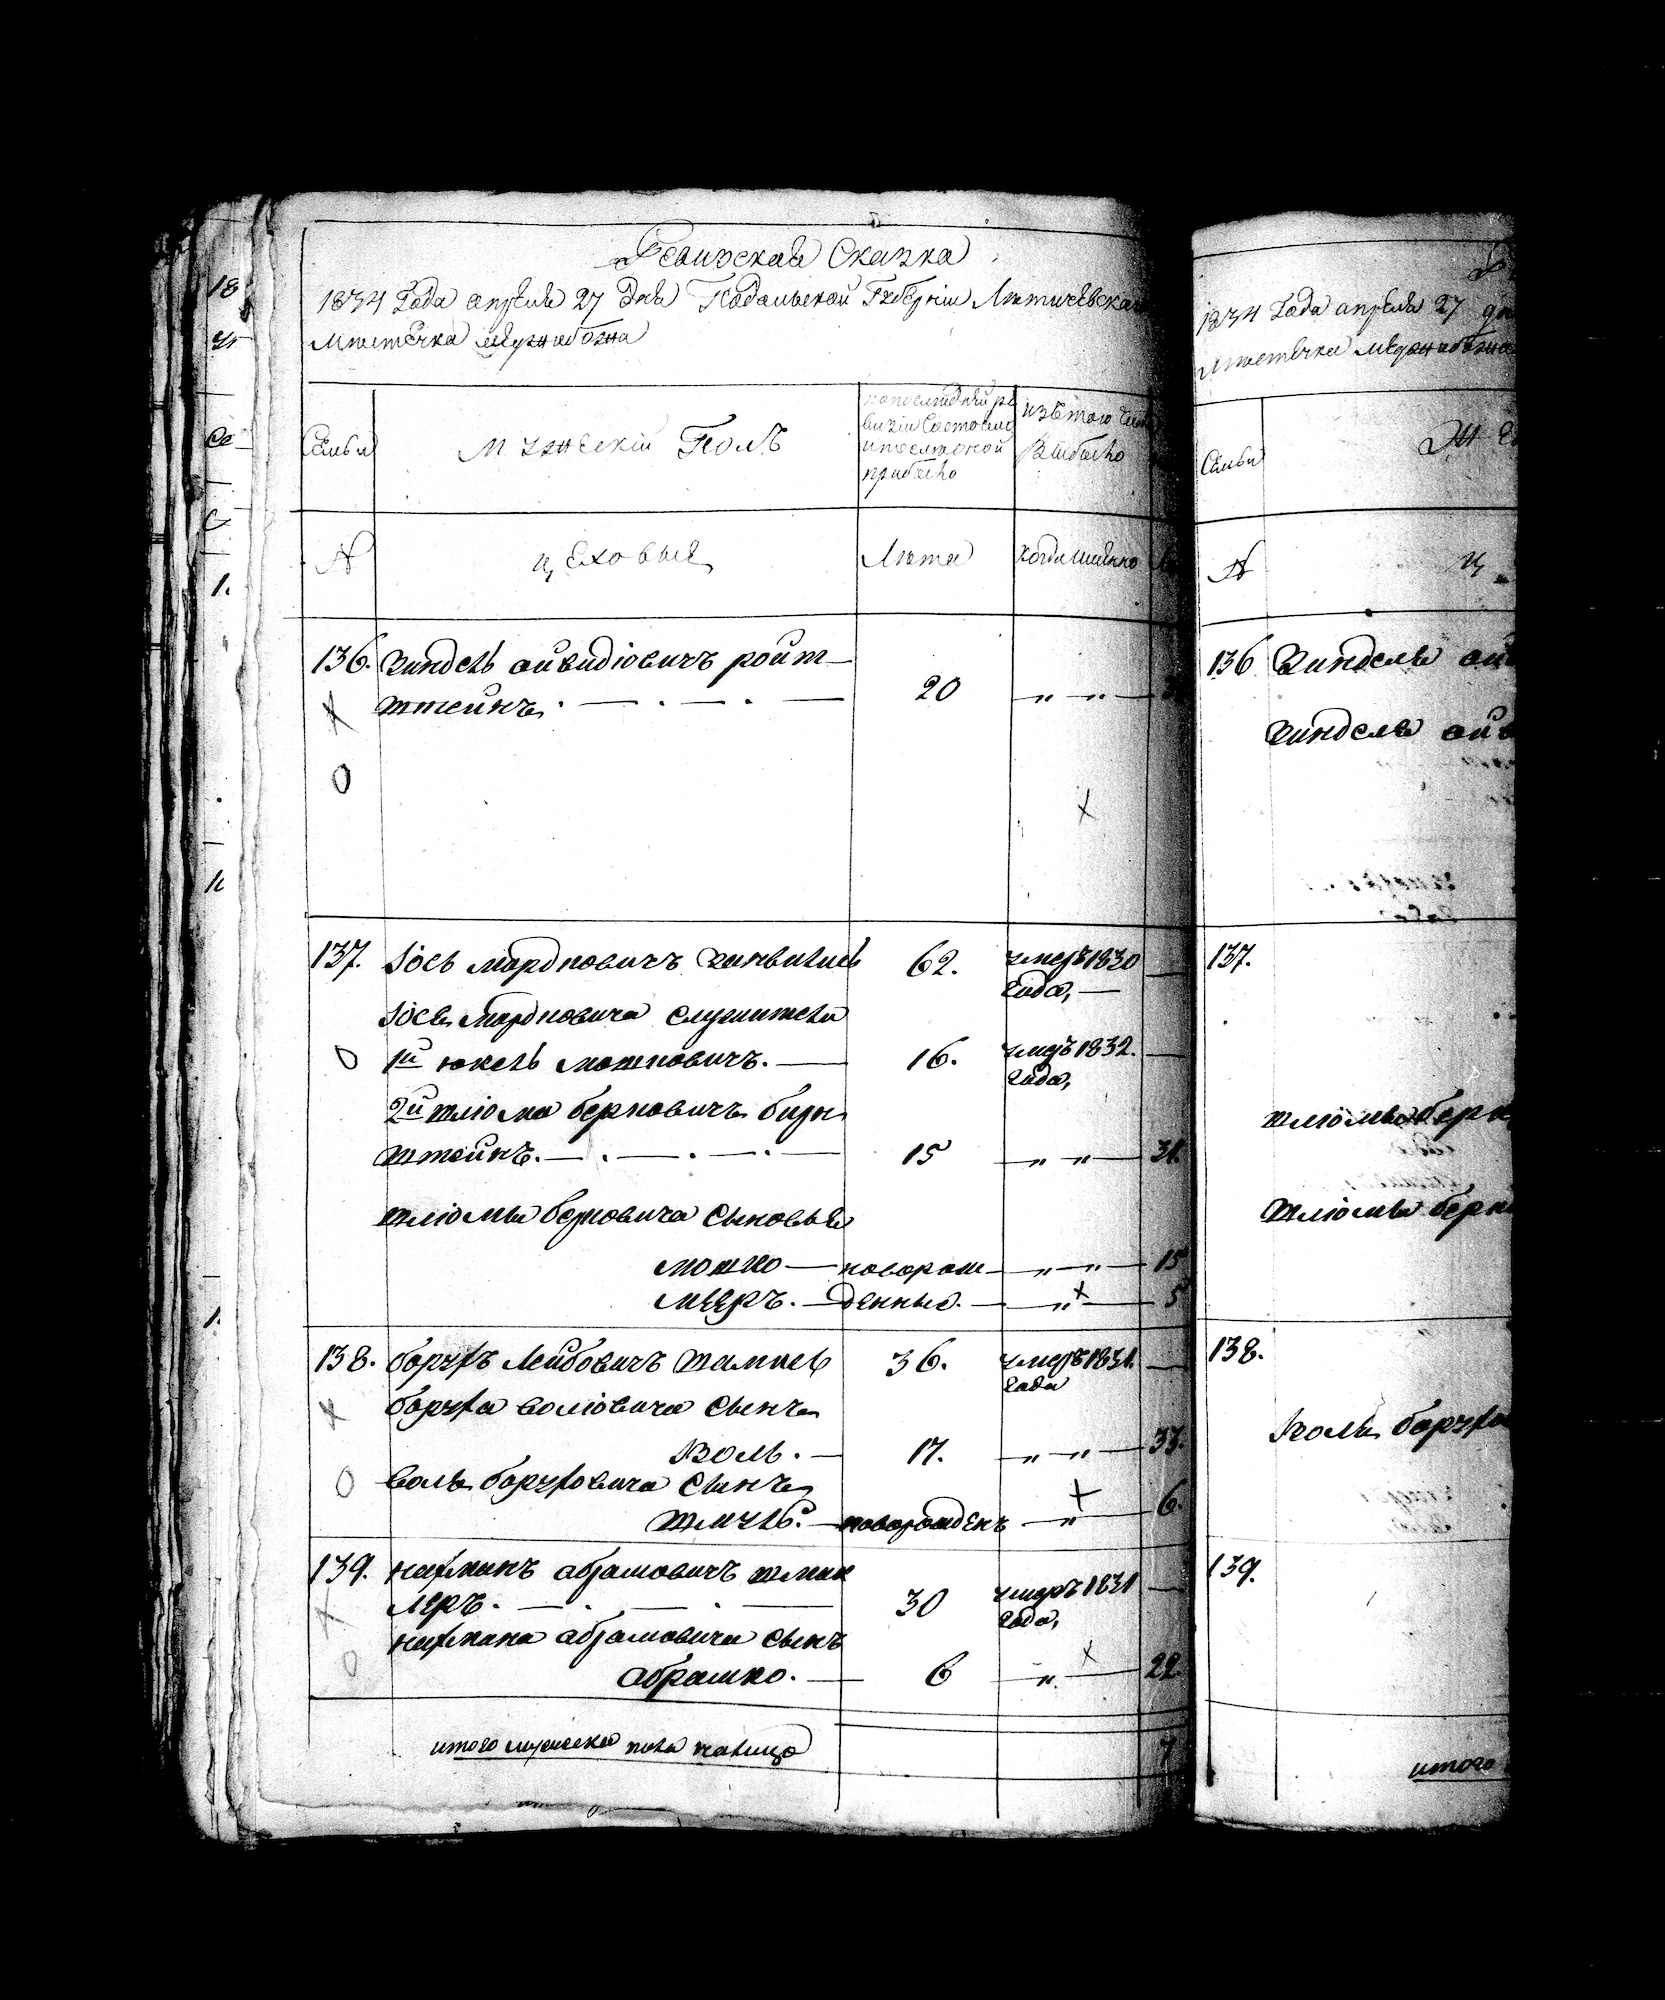 Ревизская Сказка
1834 Года апреля 27 дня Подольской Губернiи Летичевска
Местечка Меджибожа
Семьи
Мужескiй Полъ
Изъ того числа
Выбыло
прибыло
№
цеховые
Лета
когда именно
136. Зиндель айвидiовичъ ройт
штейнъ.
20
„ „
137. Iось Мордковичъ
62.
умеръ 1830
Года,
Iося Мордковича
1й Юкель Мошковичъ.
16.
умеръ 1832.
Года,
2й Шлiома Берковичъ Бирн
штейнъ.
15
„ „
31.
Шлiомы Берковича Сыновья
Мошко
новорож
„ „
15
Мееръ.
денные.
„
5
138. Борухъ Лейбовичъ
36.
умеръ 1831.
Года
Боруха волiовича Сынъ
Воль.
17.
„ „
33.
воля Боруховича Сынъ
Шмуль.
новорожденъ
„
6.
139. Нахманъ абрамовичъ шмак
леръ.
30
умеръ 1831
Года,
Нахмана абрамовича Сынъ
абрашко.
6
„
22
итого мужеска пола налицо
7
1834 Года апреля 27 дн
Местечка Меджибожа
Семьи
Же
№
ц
136 Зинделя ай
Зинделя ай
137.
Шлiомы Берк
Шлiомы Берк
138.
Воля Борухо
139.
итого